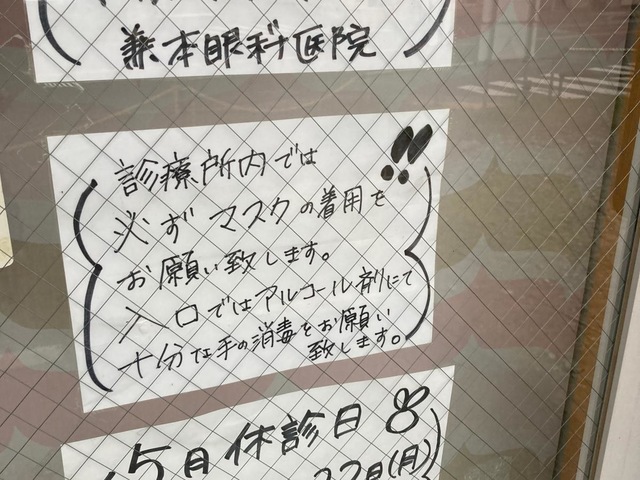 兼本眼科医院
診療所内では
必ずマスクの着用を
お願い致します。
入口ではアルコール剤にて
十分な手の消毒をお願い
致します。
!!
5月休診日
22日(月)